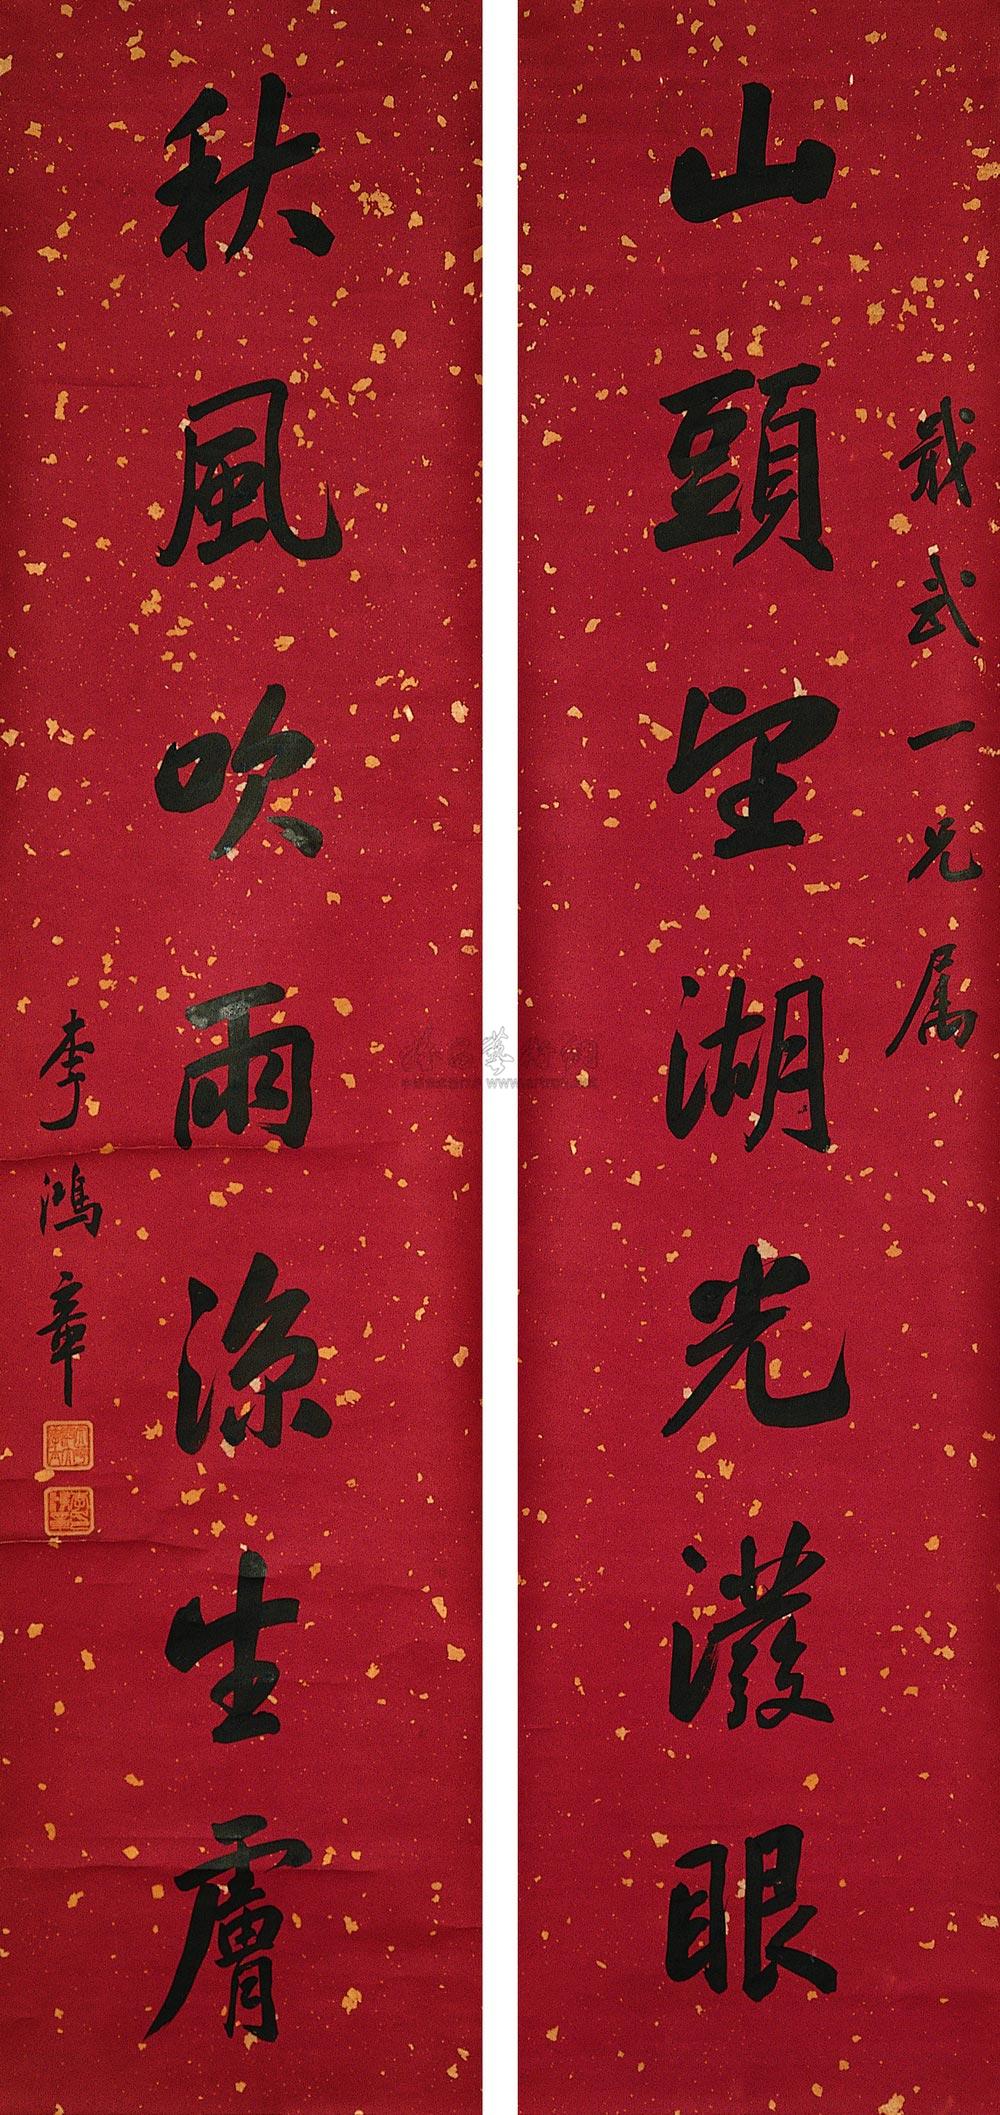 戢武一兄属
山頭望湖光潑眼
秋風吹雨涼生膚
李鴻章